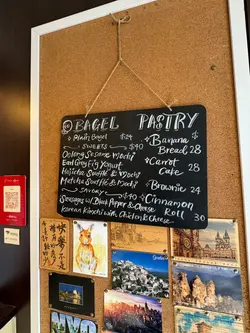 BAGEL PASTRY
Plain Bagel $24
SWEETS $40
Oolong Sesame Mochi
Earl Grey Fig Yogurt
Hojicha Soufflé & Mochi
Matcha Soufflé & Mochi
SAVORY $40
Sausages w/ Black Pepper & Cheese
Korean Kimchi with Chicken & Cheese
Banana $
Bread 28
Carrot
Cake 28
Brownie 24
Cinnamon
Roll 30
快樂
不是
NYC